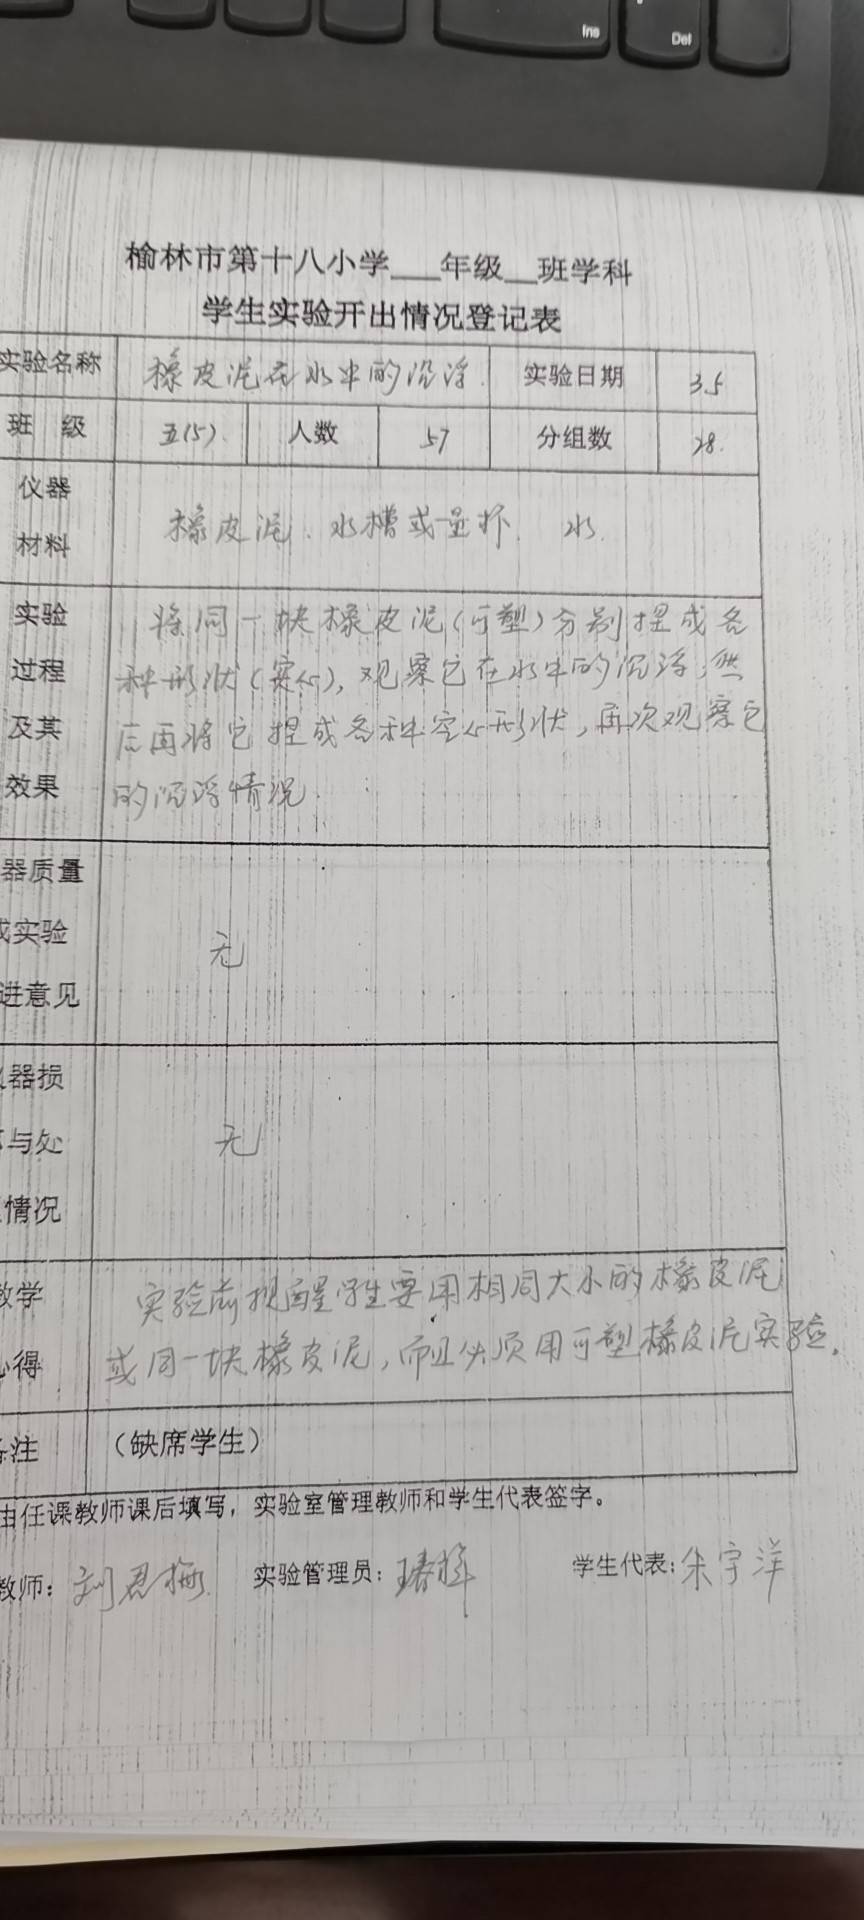 Ins
Del
榆林市第十八小学___年级__班学科
学生实验开出情况登记表
实验名称 橡皮泥在水中的沉浮. 实验日期 3.5
班 级 五(5). 人数 57 分组数 28.
仪器
材料
橡皮泥、水槽或量杯、水.
实验
过程
及其
效果
将同一块橡皮泥(可塑)分别捏成各
种形状(实心),观察它在水中的沉浮;然
后再将它捏成各种空心形状,再次观察它
的沉浮情况.
器质量
或实验
进意见
无
器损
与处
情况
无
教学
心得
实验前提醒学生要用相同大小的橡皮泥
或同一块橡皮泥,而且必须用可塑橡皮泥实验.
备注 (缺席学生)
由任课教师课后填写,实验室管理教师和学生代表签字。
教师: 实验管理员: 学生代表:朱宇洋